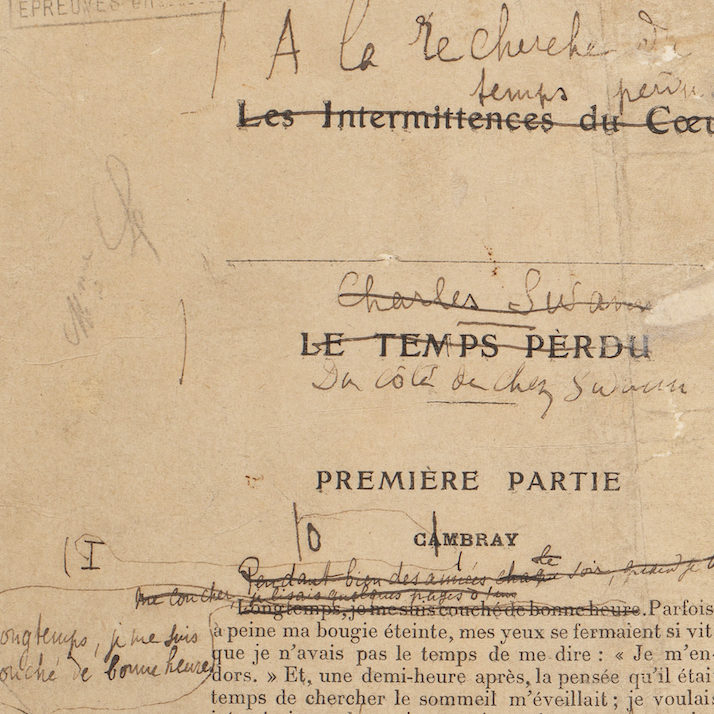 ÉPREUVES
A la recherche du
temps perdu
Les Intermittences du Cœu
Charles Swann
LE TEMPS PERDU
Du côté de chez Swann
PREMIÈRE PARTIE
I
O
CAMBRAY
Pendant bien des années chaque le soir, quand je
me coucher, je lisais quelques pages
Longtemps, je me suis couché de bonne heure. Parfois
ongtemps, je me suis
ouché de bonne heure
à peine ma bougie éteinte, mes yeux se fermaient si vit
que je n'avais pas le temps de me dire : « Je m'en-
dors. » Et, une demi-heure après, la pensée qu'il étai
temps de chercher le sommeil m'éveillait ; je voulais